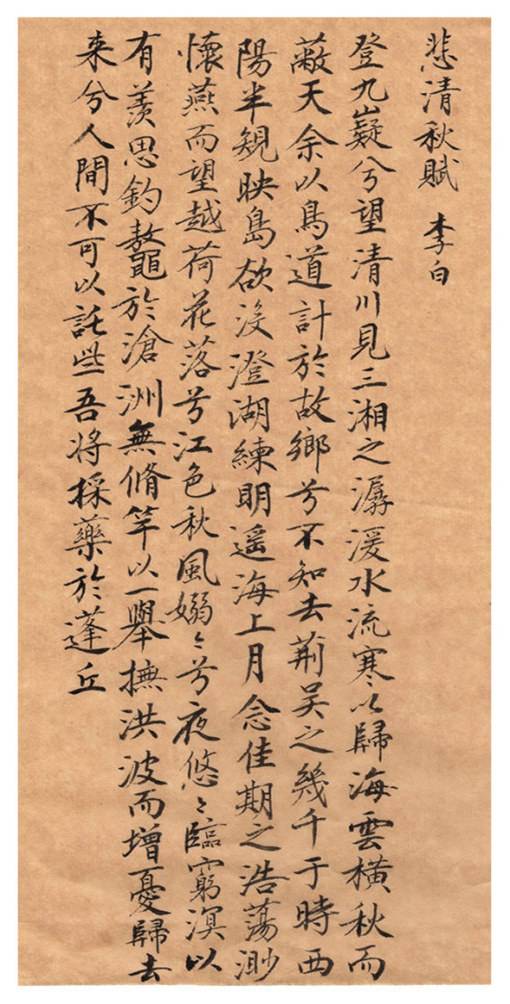 悲清秋賦 李白
登九嶷兮望清川見三湘之潺湲水流寒以歸海雲橫秋而
蔽天余以鳥道計於故鄉兮不知去荆吴之幾千于時西
陽半規映島欲没澄湖練明遥海上月念佳期之浩蕩渺
懷燕而望越荷花落兮江色秋風嫋〻兮夜悠〻臨窮溟以
有羨思釣鼇於滄洲無脩竿以一舉撫洪波而增憂歸去
来兮人間不可以託些吾将採藥於蓬丘